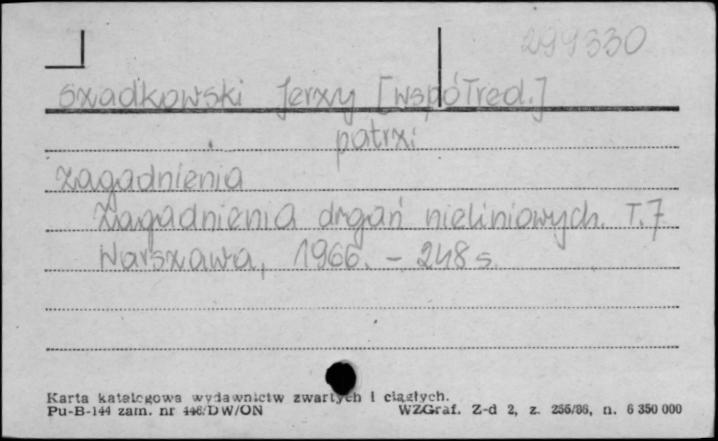 299330
Szadkowski Jerzy [współred.]
patrz:
Zagadnienia
Zagadnienia drgań nieliniowych. T.7
Warszawa, 1966. - 248 s.
Karta katalogowa wydawnictw zwartych i ciągłych.
Pu-B-144 zam. nr 446/DW/ON WZGraf. Z-d 2, z. 255/86, n. 6 350 000